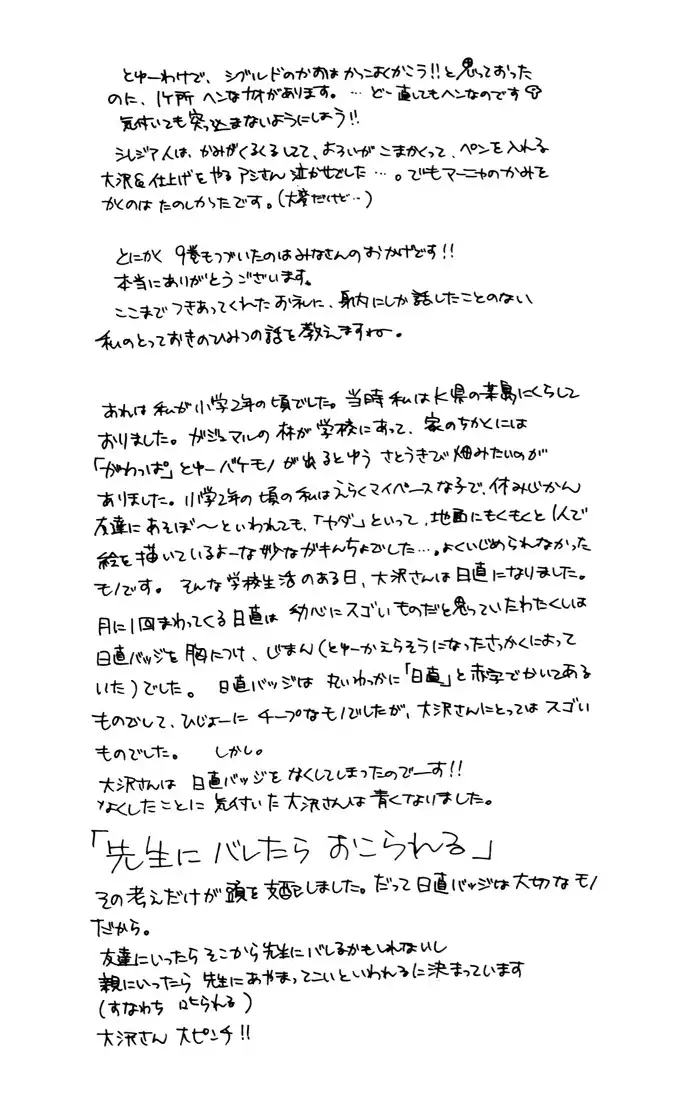 とゆーわけで、シグルドのかおは かっこよくかこう!!と思っておった
のに、1ケ所 ヘンなカオがあります。… どー直してもヘンなのです
気付いても突っ込まないようにしよう!!
シレジア人は、かみがくるくるしてて、よろいが こまかくって、ペンを入れる
大沢&仕上げをやるアシさん泣かせでした…。でもマーニャのかみを
かくのは たのしかったです。(大変だけど…)
とにかく 9巻もつづいたのはみなさんのおかげです!!
本当にありがとうございます。
ここまで つきあってくれたお礼に、身内にしか話したことのない
私のとっておきのひみつの話を教えますねー。
あれは 私が小学2年の頃でした。当時 私はK県の某島にくらして
おりました。ガジュマルの林が学校にあって、家のちかくには
「がわっぱ」とゆーバケモノが出るとゆう さとうきび畑みたいのが
ありました。小学2年の頃の私はえらくマイペースな子で、休みじかん
友達にあそぼ〜といわれても、「ヤダ」といって、地面にもくもくと1人で
絵を描いているよーな妙ながきんちょでした…。よくいじめられなかった
モノです。 そんな学校生活のある日、大沢さんは日直になりました。
月に1回まわってくる日直は 幼心にスゴいものだと思っていたわたくしは
日直バッジを胸につけ、じまん(とゆーかえらそうになったさっかくによって
いた)でした。 日直バッジは 丸いわっかに「日直」と赤字でかいてある
ものでして、ひじょーに チープなモノでしたが、大沢さんにとってはスゴい
ものでした。 しかし。
大沢さんは 日直バッジをなくしてしまったのでーす!!
なくしたことに 気付いた大沢さんは 青くなりました。
「先生に バレたら おこられる」
その考えだけが頭を支配しました。だって日直バッジは大切なモノ
だから。
友達にいったら そこから先生にバレるかもしれないし
親にいったら 先生にあやまってこいといわれるに決まっています
(すなわち 叱られる)
大沢さん 大ピンチ!!